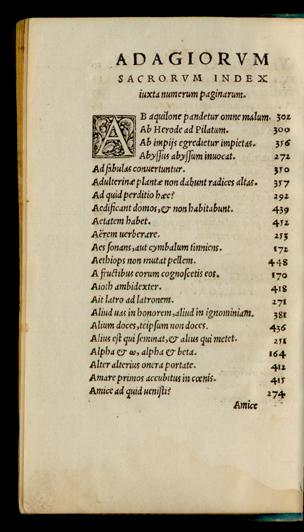 ADAGIORVM
SACRORVM INDEX
iuxta numerum paginarum.
AB aquilone pandetur omne malum. 302
Ab Herode ad Pilatum. 300
Ab impijs egredietur impietas. 316
Abyssus abyssum inuocat. 272
Ad fibulas conuertuntur. 310
Adulterinæ plantæ non dabunt radices altas. 357
Ad quid perditio hæc? 292
Aedificant domos, & non habitabunt. 439
Aetatem habet. 452
Aërem uerberare. 253
Aes sonans, aut cymbalum tinniens. 172
Aethiops non mutat pellem. 448
A fructibus eorum cognoscetis eos. 170
Aioth ambidexter. 418
Ait latro ad latronem. 271
Aliud uas in honorem, aliud in ignominiam. 381
Alium doces, teipsum non doces. 436
Alius est qui seminat, & alius qui metet. 251
Alpha & ω, alpha & beta. 164
Alter alterius onera portate. 412
Amare primos accubitus in cœnis. 415
Amice ad quid uenisti? 274
Amice